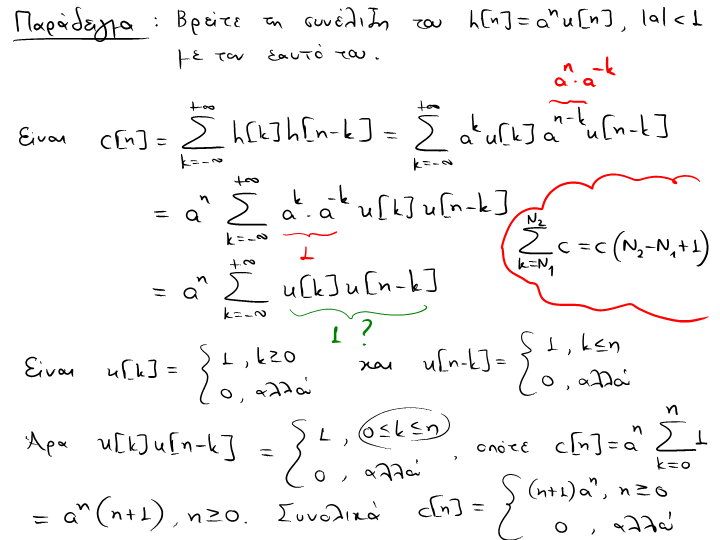 Παράδειγμα : Βρείτε τη συνέλιξη του h[n] = aⁿu[n], |a| < 1
με τον εαυτό του.
aⁿ · a⁻ᵏ
Είναι c[n] = ∑_{k=-∞}^{+∞} h[k]h[n-k] = ∑_{k=-∞}^{+∞} aᵏu[k] aⁿ⁻ᵏu[n-k]
= aⁿ ∑_{k=-∞}^{+∞} aᵏ · a⁻ᵏ u[k] u[n-k]
1
∑_{k=N₁}^{N₂} c = c (N₂-N₁+1)
= aⁿ ∑_{k=-∞}^{+∞} u[k] u[n-k]
1 ?
Είναι u[k] = { 1, k≥0 και u[n-k] = { 1, k≤n
0, αλλού 0, αλλού
Άρα u[k]u[n-k] = { 1, 0≤k≤n , οπότε c[n] = aⁿ ∑_{k=0}^{n} 1
0, αλλού
= aⁿ(n+1), n≥0. Συνολικά c[n] = { (n+1)aⁿ, n≥0
0, αλλού